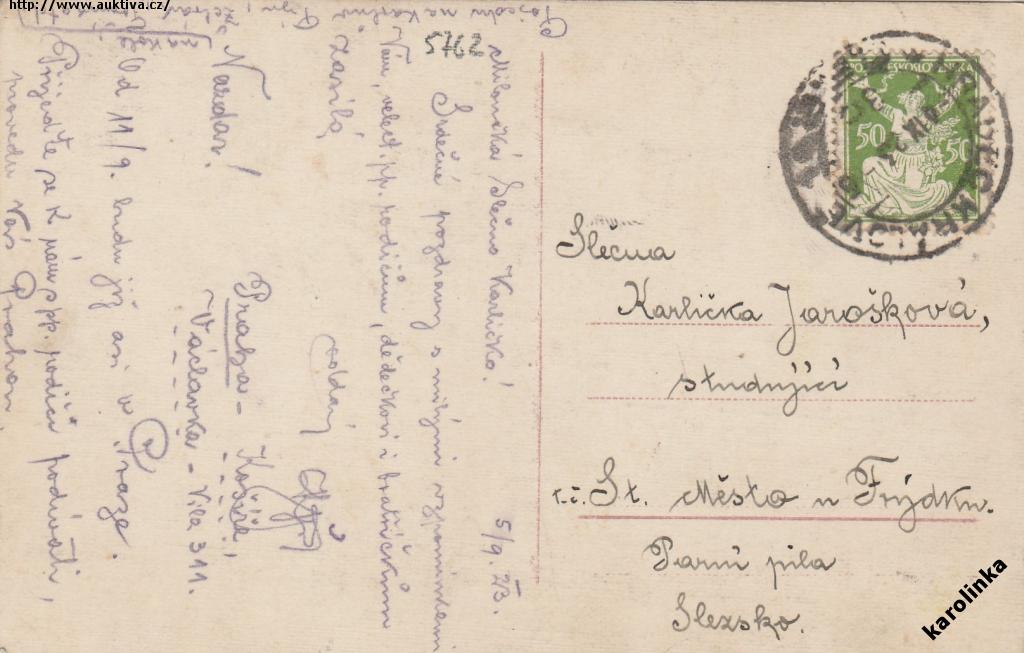 http://www.auktiva.cz/
5762
Milenská Slečno Karličko!
5/9. 23.
Srdečné pozdravy s milými vzpomínkami
Vám, velect. pp. rodičům, dědečkovi i bratříčkům
zasílá
oddaný
Praha-
Košíře,
Václavka - Vila 311.
Nazdar!
Od 11/9. budu již asi v Praze.
Přijeďte se k nám s pp. rodiči podívati,
provedu Vás Prahou
50 50
HRADEC KRÁLOVÉ
Slečna
Karlička Jarošková,
studující
t.č. St. Město u Frýdku.
Parní pila
Slezsko.
karolinka